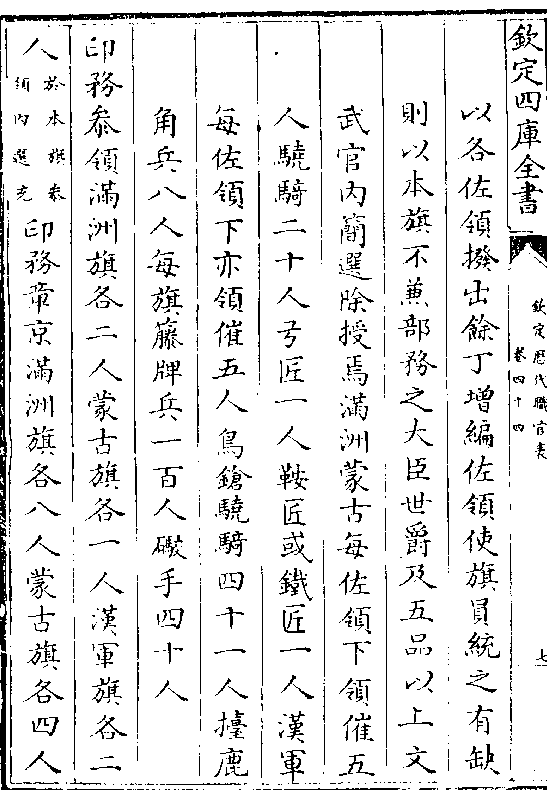 欽定四庫全書
欽定歷代職官表
卷四十四
七
以各佐領撥出餘丁增編佐領使旗員統之有缺
則以本旗不兼部務之大臣世爵及五品以上文
武官內簡選除授焉滿洲蒙古每佐領下領催五
人驍騎二十人弓匠一人鞍匠或鐵匠一人漢軍
每佐領下亦領催五人鳥鎗驍騎四十一人擡鹿
角兵八人每旗藤牌兵一百人礮手四十人
印務叅領滿洲旗各二人蒙古旗各一人漢軍旗各二
人於本旗叅領內選充印務章京滿洲旗各八人蒙古旗各四人